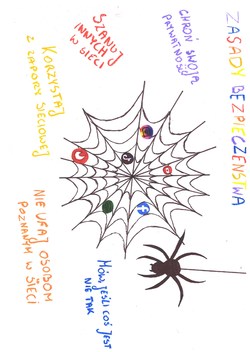 ZASADY BEZPIECZEŃSTWA
CHROŃ SWOJĄ
PRYWATNOŚĆ
SZANUJ
INNYCH
W SIECI
KORZYSTAJ
Z ZAPORY SIECIOWEJ
NIE UFAJ OSOBOM
POZNANYM W SIECI
MÓW JEŚLI COŚ JEST
NIE TAK